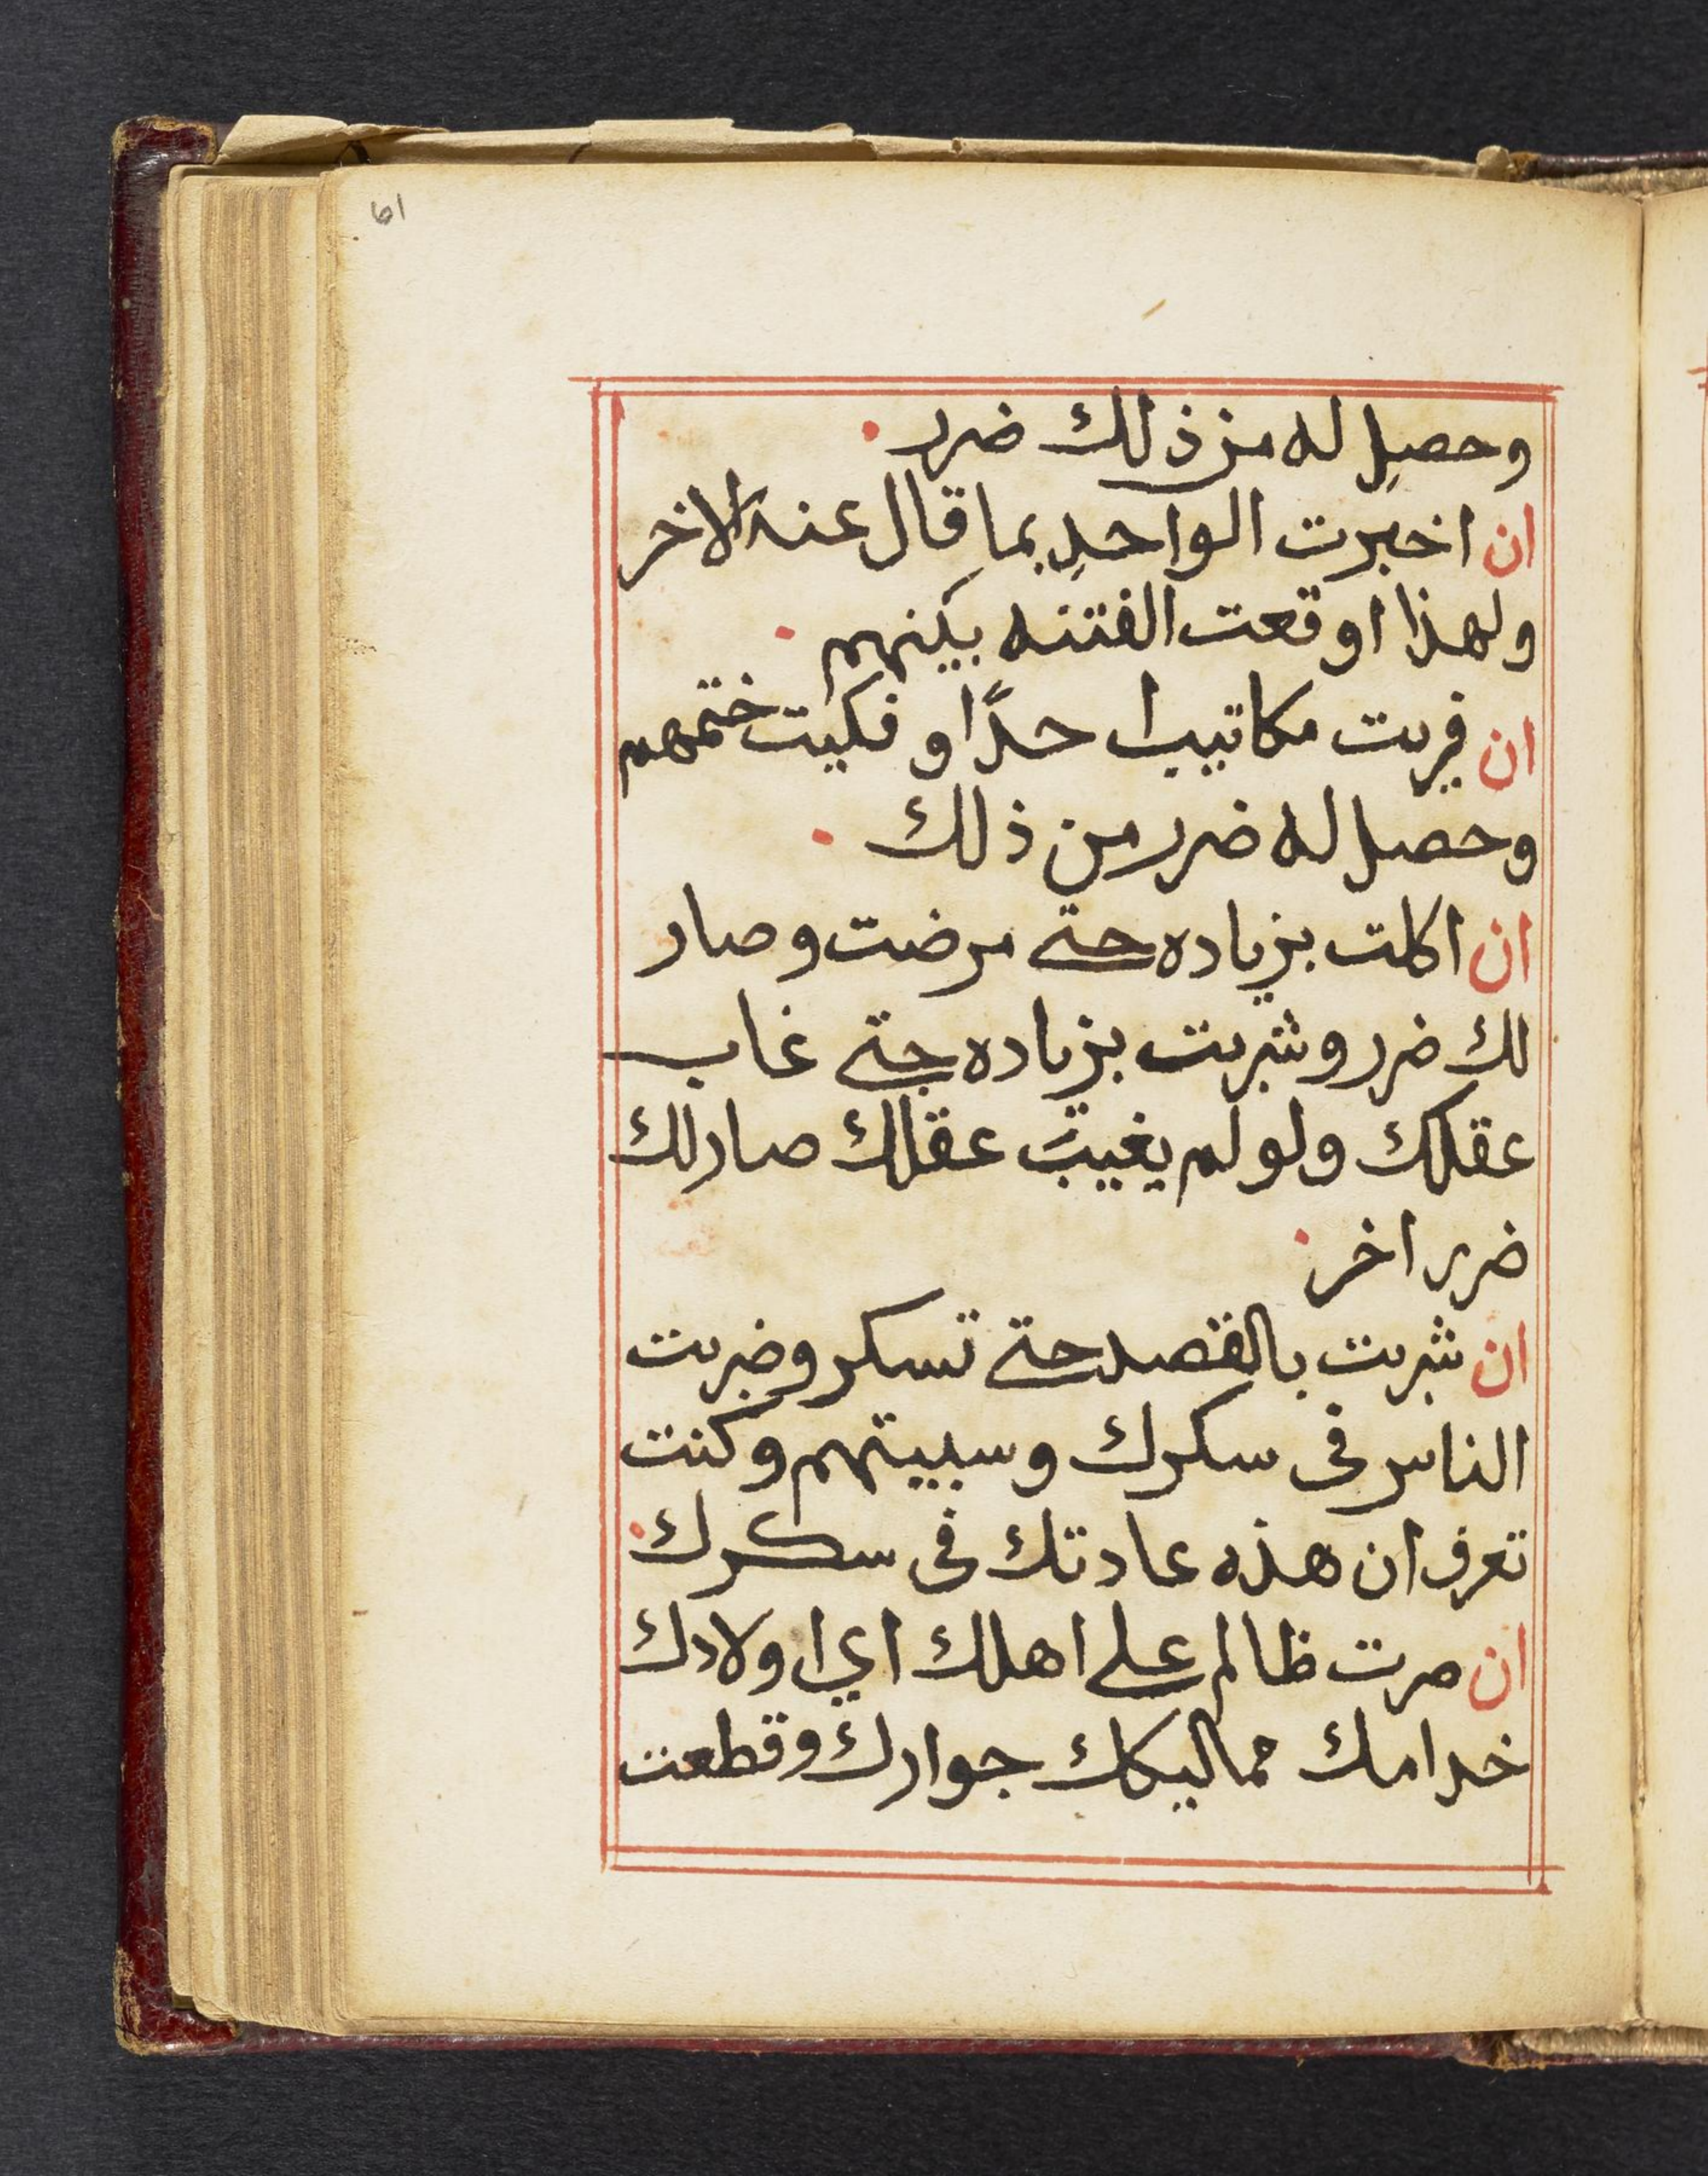 61
وحصل له من ذلك ضرر
ان اخبرت الواحد بما قال عنه الاخر
ولهذا اوقعت الفتنه بينهم
ان قريت مكاتيب احدًا و فكيت ختمهم
وحصل له ضرر من ذلك
ان اكلت بزياده حتى مرضت وصار
لك ضرر وشربت بزياده حتى غاب
عقلك ولو لم يغيب عقلك صار لك
ضرر اخر
ان شربت بالقصد حتى تسكر وضربت
الناس فى سكرك وسبيتهم وكنت
تعرف ان هذه عادتك فى سكرك
ان صرت ظالم على اهلك اي اولادك
خدامك مماليكك جوارك وقطعت